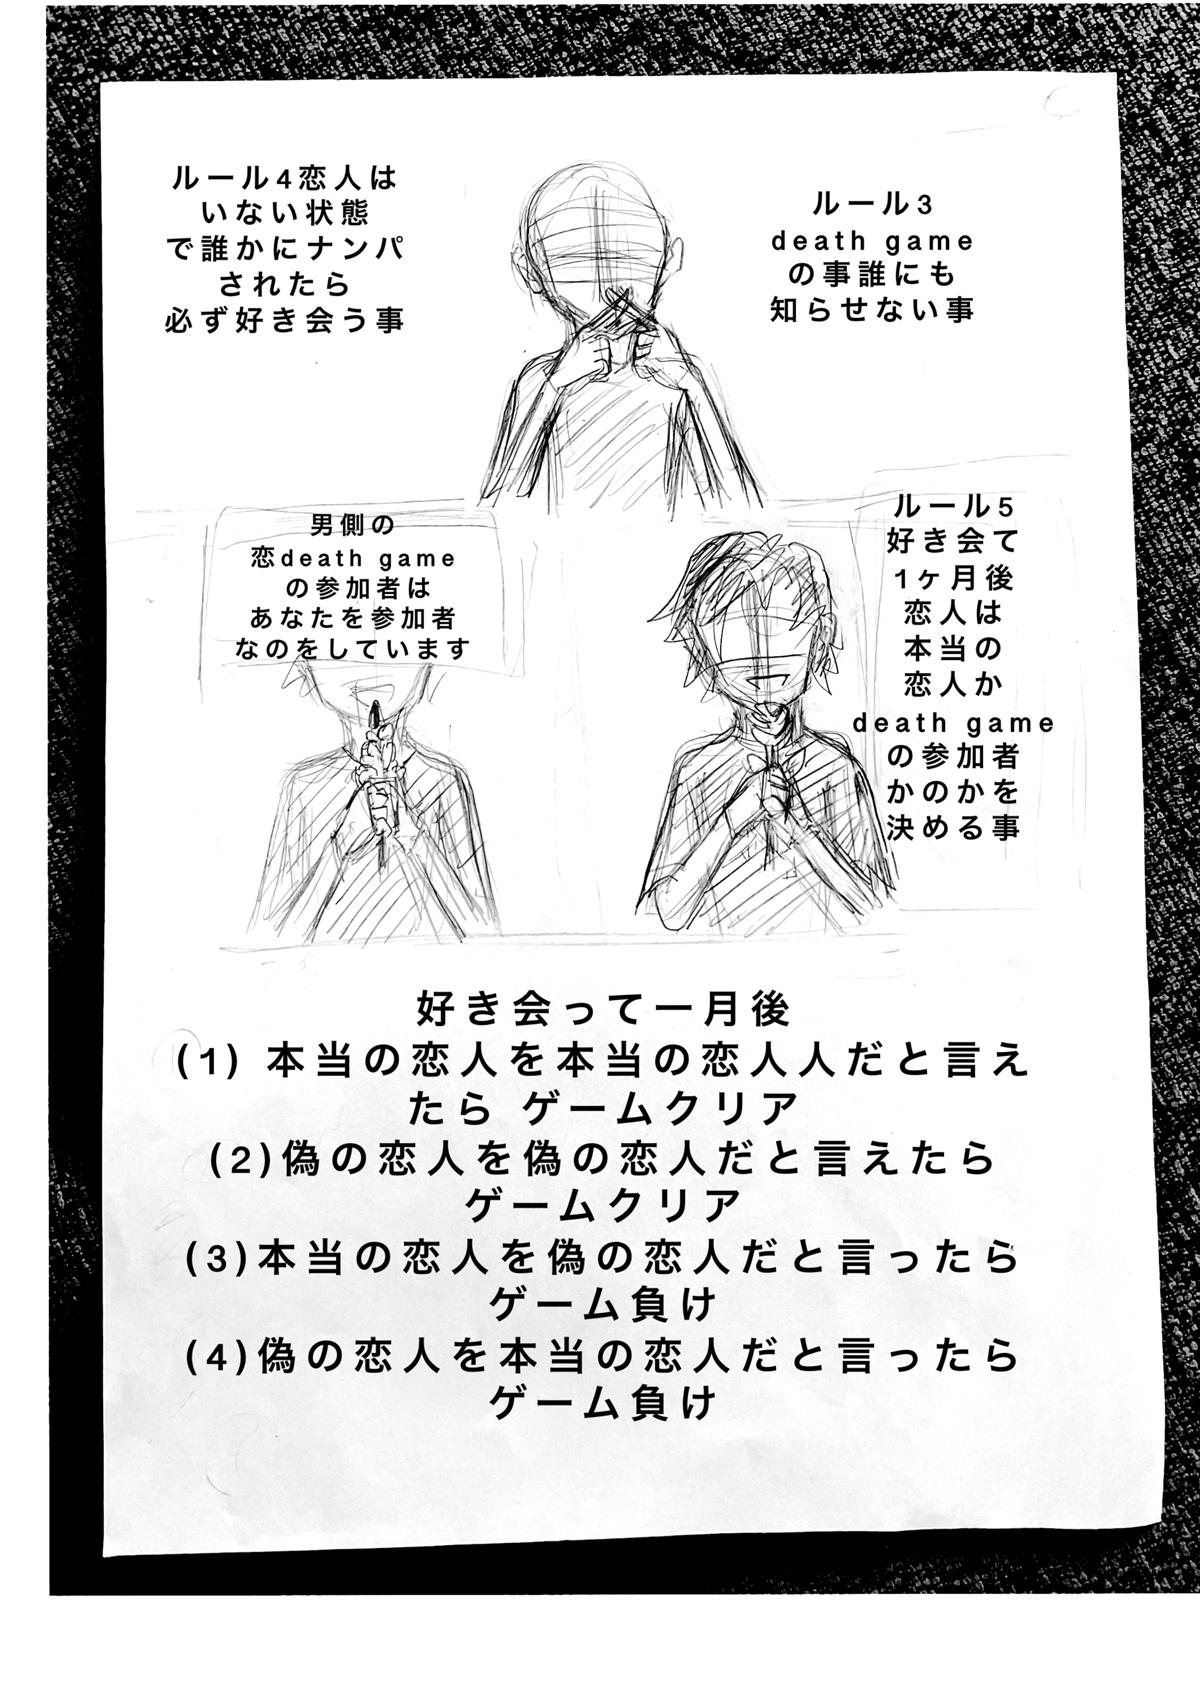 ルール3
death game
の事誰にも
知らせない事
ルール4恋人は
いない状態
で誰かにナンパ
されたら
必ず好き会う事
ルール5
好き会て
1ヶ月後
恋人は
本当の
恋人か
death game
の参加者
かのかを
決める事
男側の
恋death game
の参加者は
あなたを参加者
なのをしています
好き会って一月後
(1) 本当の恋人を本当の恋人人だと言え
たら ゲームクリア
(2)偽の恋人を偽の恋人だと言えたら
ゲームクリア
(3)本当の恋人を偽の恋人だと言ったら
ゲーム負け
(4)偽の恋人を本当の恋人だと言ったら
ゲーム負け